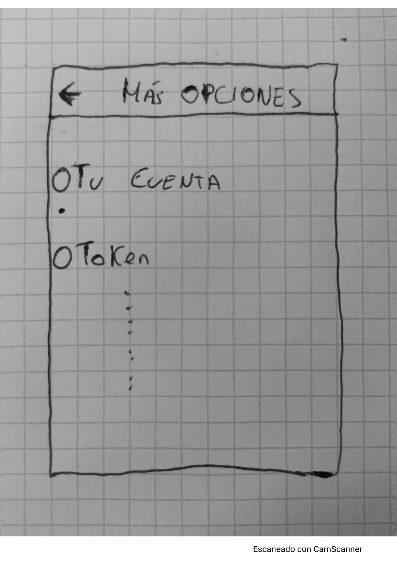 ← MÁS OPCIONES
O TU CUENTA
O Token
Escaneado con CamScanner